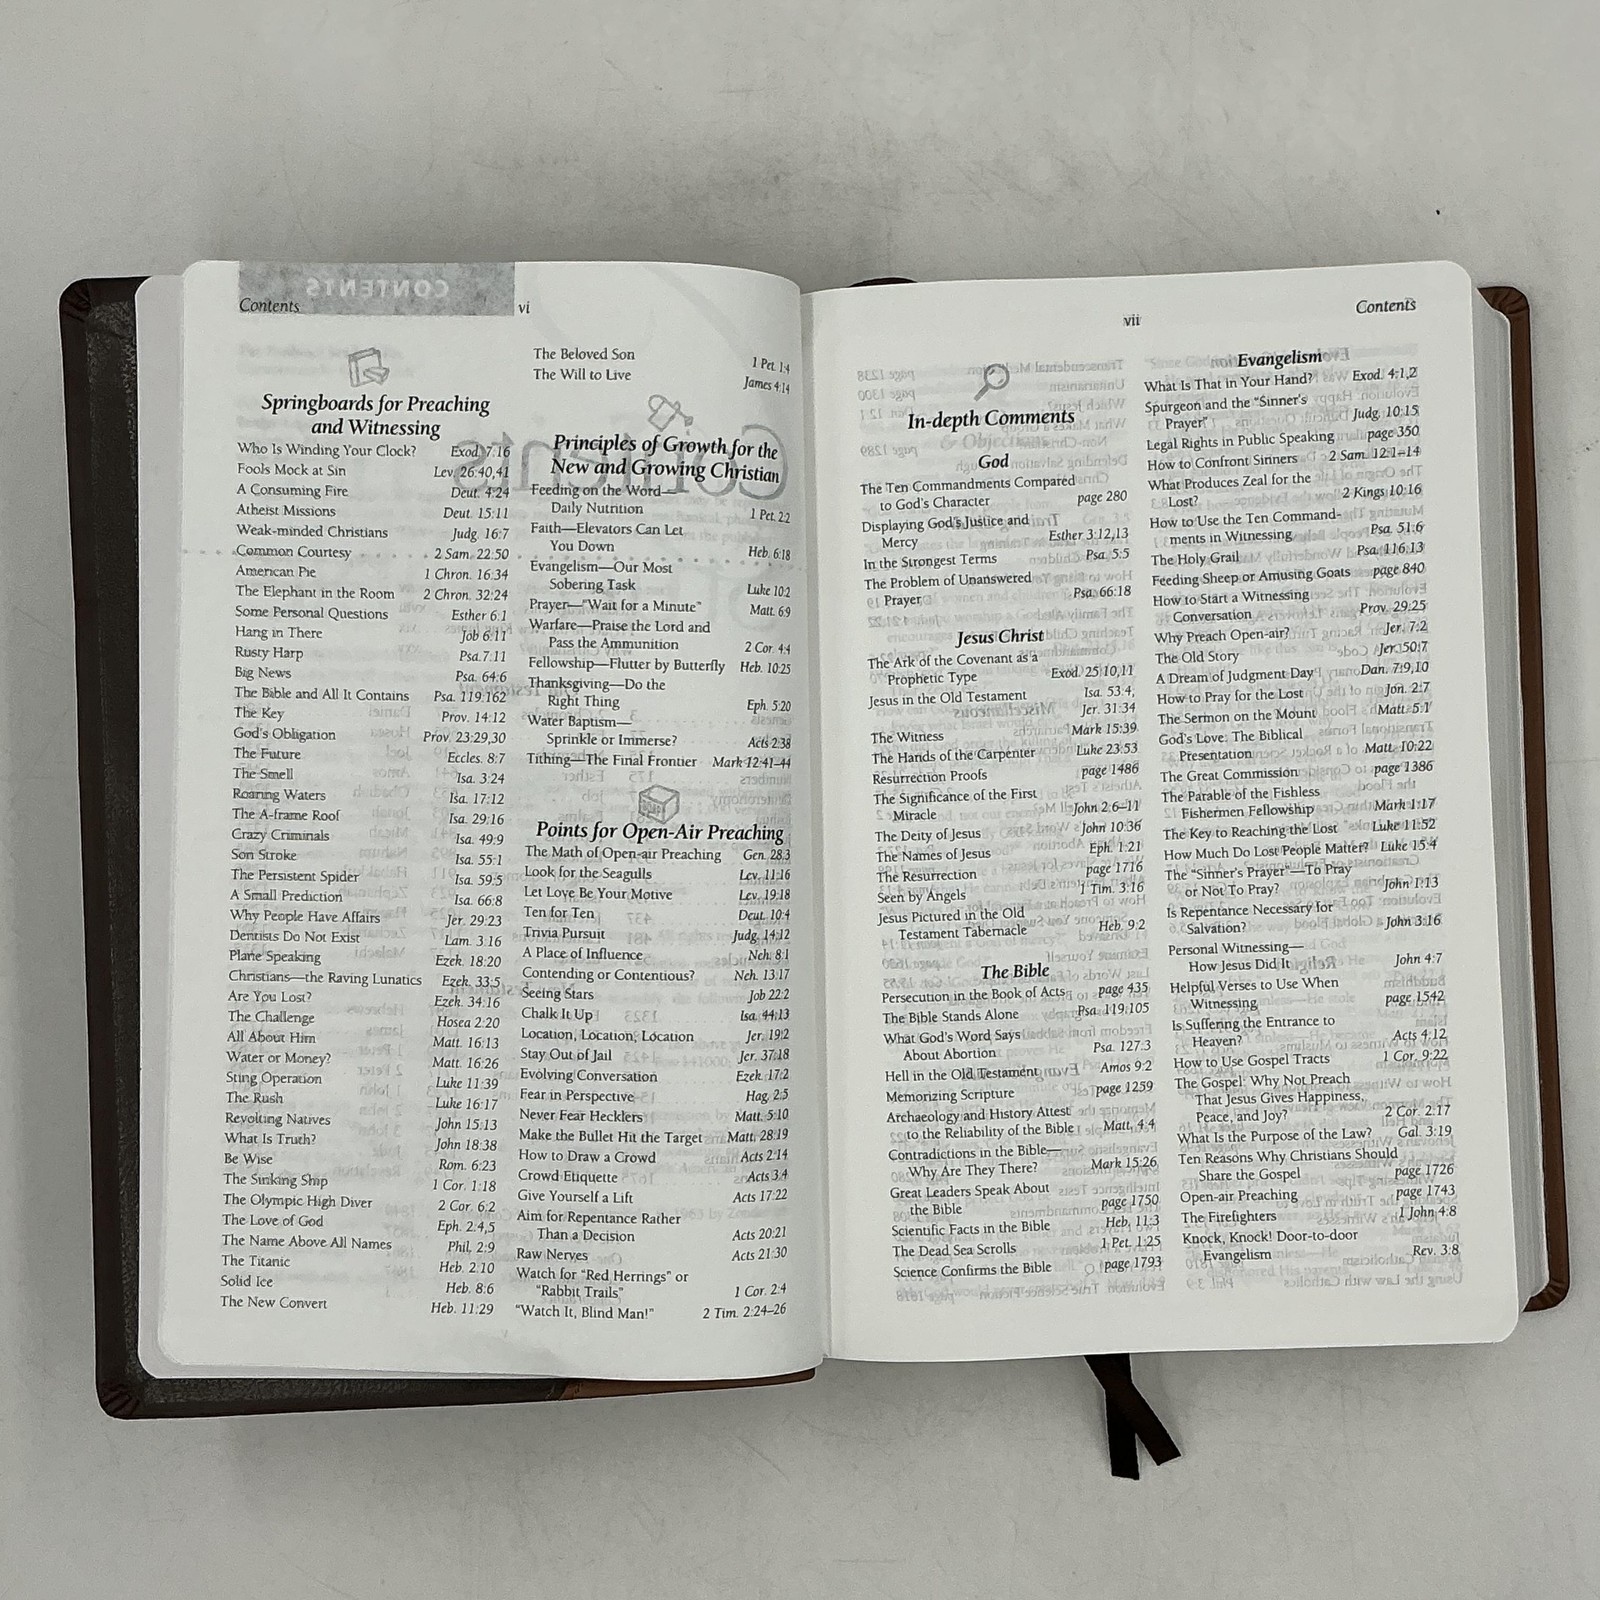 Contents
vi
Springboards for Preaching
and Witnessing
Who Is Winding Your Clock? Exod. 7:16
Fools Mock at Sin Lev. 26:40,41
A Consuming Fire Deut. 4:24
Atheist Missions Deut. 15:11
Weak-minded Christians Judg. 16:7
Common Courtesy 2 Sam. 22:50
American Pie 1 Chron. 16:34
The Elephant in the Room 2 Chron. 32:24
Some Personal Questions Esther 6:1
Hang in There Job 6:11
Rusty Harp Psa. 7:11
Big News Psa. 64:6
The Bible and All It Contains Psa. 119:162
The Key Prov. 14:12
God's Obligation Prov. 23:29,30
The Future Eccles. 8:7
The Smell Isa. 3:24
Roaring Waters Isa. 17:12
The A-frame Roof Isa. 29:16
Crazy Criminals Isa. 49:9
Son Stroke Isa. 55:1
The Persistent Spider Isa. 59:5
A Small Prediction Isa. 66:8
Why People Have Affairs Jer. 29:23
Dentists Do Not Exist Lam. 3:16
Plane Speaking Ezek. 18:20
Christians—the Raving Lunatics Ezek. 33:5
Are You Lost? Ezek. 34:16
The Challenge Hosea 2:20
All About Him Matt. 16:13
Water or Money? Matt. 16:26
Sting Operation Luke 11:39
The Rush Luke 16:17
Revolting Natives John 15:13
What Is Truth? John 18:38
Be Wise Rom. 6:23
The Sinking Ship 1 Cor. 1:18
The Olympic High Diver 2 Cor. 6:2
The Love of God Eph. 2:4,5
The Name Above All Names Phil. 2:9
The Titanic Heb. 2:10
Solid Ice Heb. 8:6
The New Convert Heb. 11:29
The Beloved Son 1 Pet. 1:4
The Will to Live James 4:14
Principles of Growth for the
New and Growing Christian
Feeding on the Word—
Daily Nutrition 1 Pet. 2:2
Faith—Elevators Can Let
You Down Heb. 6:18
Evangelism—Our Most
Sobering Task Luke 10:2
Prayer—"Wait for a Minute" Matt. 6:9
Warfare—Praise the Lord and
Pass the Ammunition 2 Cor. 4:4
Fellowship—Flutter by Butterfly Heb. 10:25
Thanksgiving—Do the
Right Thing Eph. 5:20
Water Baptism—
Sprinkle or Immerse? Acts 2:38
Tithing—The Final Frontier Mark 12:41–44
Points for Open-Air Preaching
The Math of Open-air Preaching Gen. 28:3
Look for the Seagulls Lev. 11:16
Let Love Be Your Motive Lev. 19:18
Ten for Ten Deut. 10:4
Trivia Pursuit Judg. 14:12
A Place of Influence Neh. 8:1
Contending or Contentious? Neh. 13:17
Seeing Stars Job 22:2
Chalk It Up Isa. 44:13
Location, Location, Location Jer. 19:2
Stay Out of Jail Jer. 37:18
Evolving Conversation Ezek. 17:2
Fear in Perspective Hag. 2:5
Never Fear Hecklers Matt. 5:10
Make the Bullet Hit the Target Matt. 28:19
How to Draw a Crowd Acts 2:14
Crowd Etiquette Acts 3:4
Give Yourself a Lift Acts 17:22
Aim for Repentance Rather
Than a Decision Acts 20:21
Raw Nerves Acts 21:30
Watch for "Red Herrings" or
"Rabbit Trails" 1 Cor. 2:4
"Watch It, Blind Man!" 2 Tim. 2:24–26
vii
Contents
In-depth Comments
God
The Ten Commandments Compared
to God's Character page 280
Displaying God's Justice and
Mercy Esther 3:12,13
In the Strongest Terms Psa. 5:5
The Problem of Unanswered
Prayer Psa. 66:18
Jesus Christ
The Ark of the Covenant as a
Prophetic Type Exod. 25:10,11
Jesus in the Old Testament Isa. 53:4,
Jer. 31:34
The Witness Mark 15:39
The Hands of the Carpenter Luke 23:53
Resurrection Proofs page 1486
The Significance of the First
Miracle John 2:6–11
The Deity of Jesus John 10:36
The Names of Jesus Eph. 1:21
The Resurrection page 1716
Seen by Angels 1 Tim. 3:16
Jesus Pictured in the Old
Testament Tabernacle Heb. 9:2
The Bible
Persecution in the Book of Acts page 435
The Bible Stands Alone Psa. 119:105
What God's Word Says
About Abortion Psa. 127:3
Hell in the Old Testament Amos 9:2
Memorizing Scripture page 1259
Archaeology and History Attest
to the Reliability of the Bible Matt. 4:4
Contradictions in the Bible—
Why Are They There? Mark 15:26
Great Leaders Speak About
the Bible page 1750
Scientific Facts in the Bible Heb. 11:3
The Dead Sea Scrolls 1 Pet. 1:25
Science Confirms the Bible page 1793
Evangelism
What Is That in Your Hand? Exod. 4:1,2
Spurgeon and the "Sinner's
Prayer" Judg. 10:15
Legal Rights in Public Speaking page 350
How to Confront Sinners 2 Sam. 12:1–14
What Produces Zeal for the
Lost? 2 Kings 10:16
How to Use the Ten Command-
ments in Witnessing Psa. 51:6
The Holy Grail Psa. 116:13
Feeding Sheep or Amusing Goats page 840
How to Start a Witnessing
Conversation Prov. 29:25
Why Preach Open-air? Jer. 7:2
The Old Story Jer. 50:7
A Dream of Judgment Day Dan. 7:9,10
How to Pray for the Lost Jon. 2:7
The Sermon on the Mount Matt. 5:1
God's Love: The Biblical
Presentation Matt. 10:22
The Great Commission page 1386
The Parable of the Fishless
Fishermen Fellowship Mark 1:17
The Key to Reaching the Lost Luke 11:52
How Much Do Lost People Matter? Luke 15:4
The "Sinner's Prayer"—To Pray
or Not To Pray? John 1:13
Is Repentance Necessary for
Salvation? John 3:16
Personal Witnessing—
How Jesus Did It John 4:7
Helpful Verses to Use When
Witnessing page 1542
Is Suffering the Entrance to
Heaven? Acts 4:12
How to Use Gospel Tracts 1 Cor. 9:22
The Gospel: Why Not Preach
That Jesus Gives Happiness,
Peace, and Joy? 2 Cor. 2:17
What Is the Purpose of the Law? Gal. 3:19
Ten Reasons Why Christians Should
Share the Gospel page 1726
Open-air Preaching page 1743
The Firefighters 1 John 4:8
Knock, Knock! Door-to-door
Evangelism Rev. 3:8